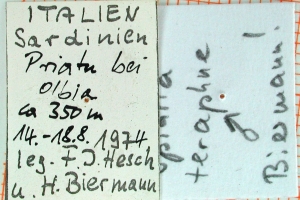 ITALIEN
Sardinien
Priatu bei
Olbia
ca 350m
14.-18.8. 1974
leg. F.J. Hesch
u. H. Biermann
teraphne ♂ !
Biermann